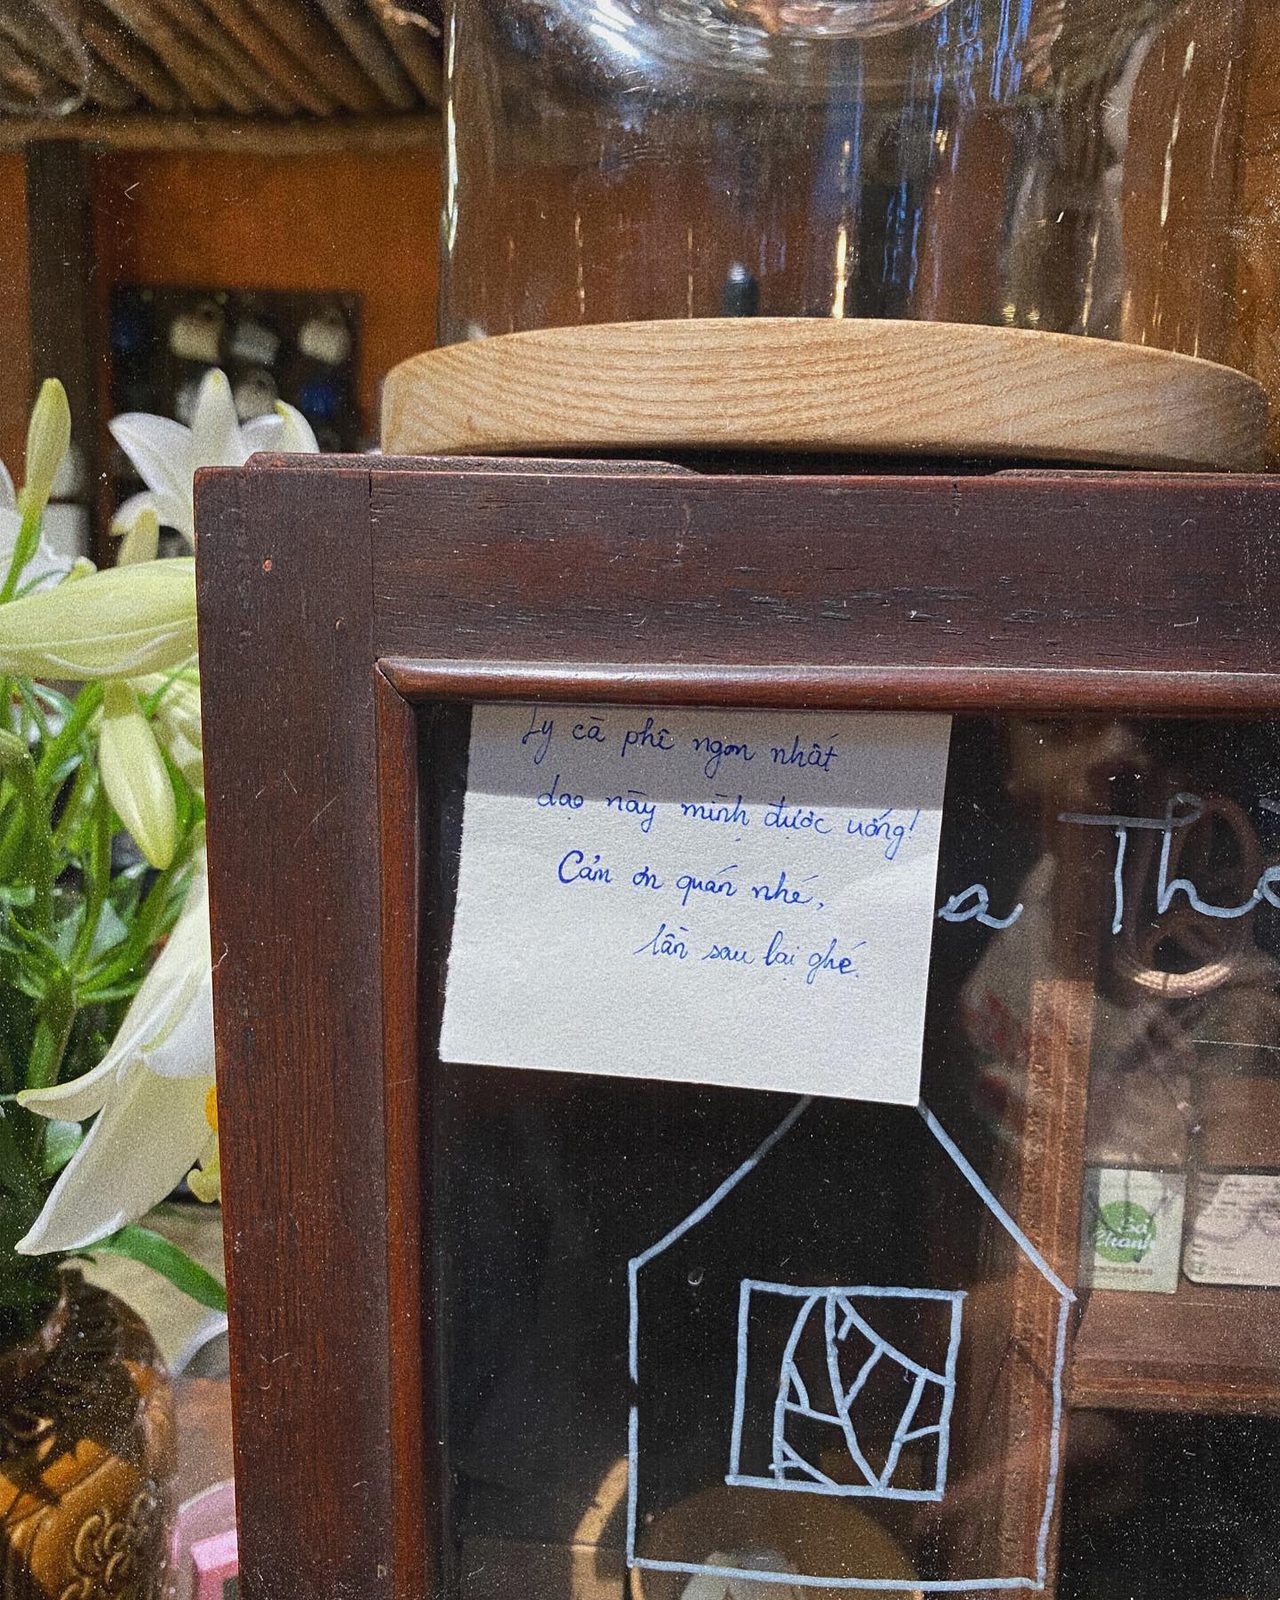 Ly cà phê ngon nhất
dạo này mình được uống!
Cản ơn quán nhé,
lần sau lại ghé.
a Thờ
Chanh